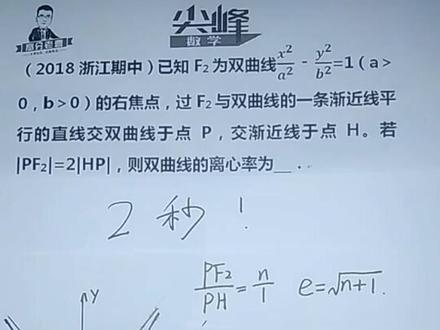 尖峰
数学
高分老猫
(2018 浙江期中) 已知 F₂为双曲线x²/a² - y²/b²=1 (a>
0, b>0) 的右焦点，过 F₂与双曲线的一条渐近线平
行的直线交双曲线于点 P，交渐近线于点 H。若
|PF₂|=2|HP|，则双曲线的离心率为__ .
2 秒！
PF₂/PH = n/1 e=√n+1.
Y